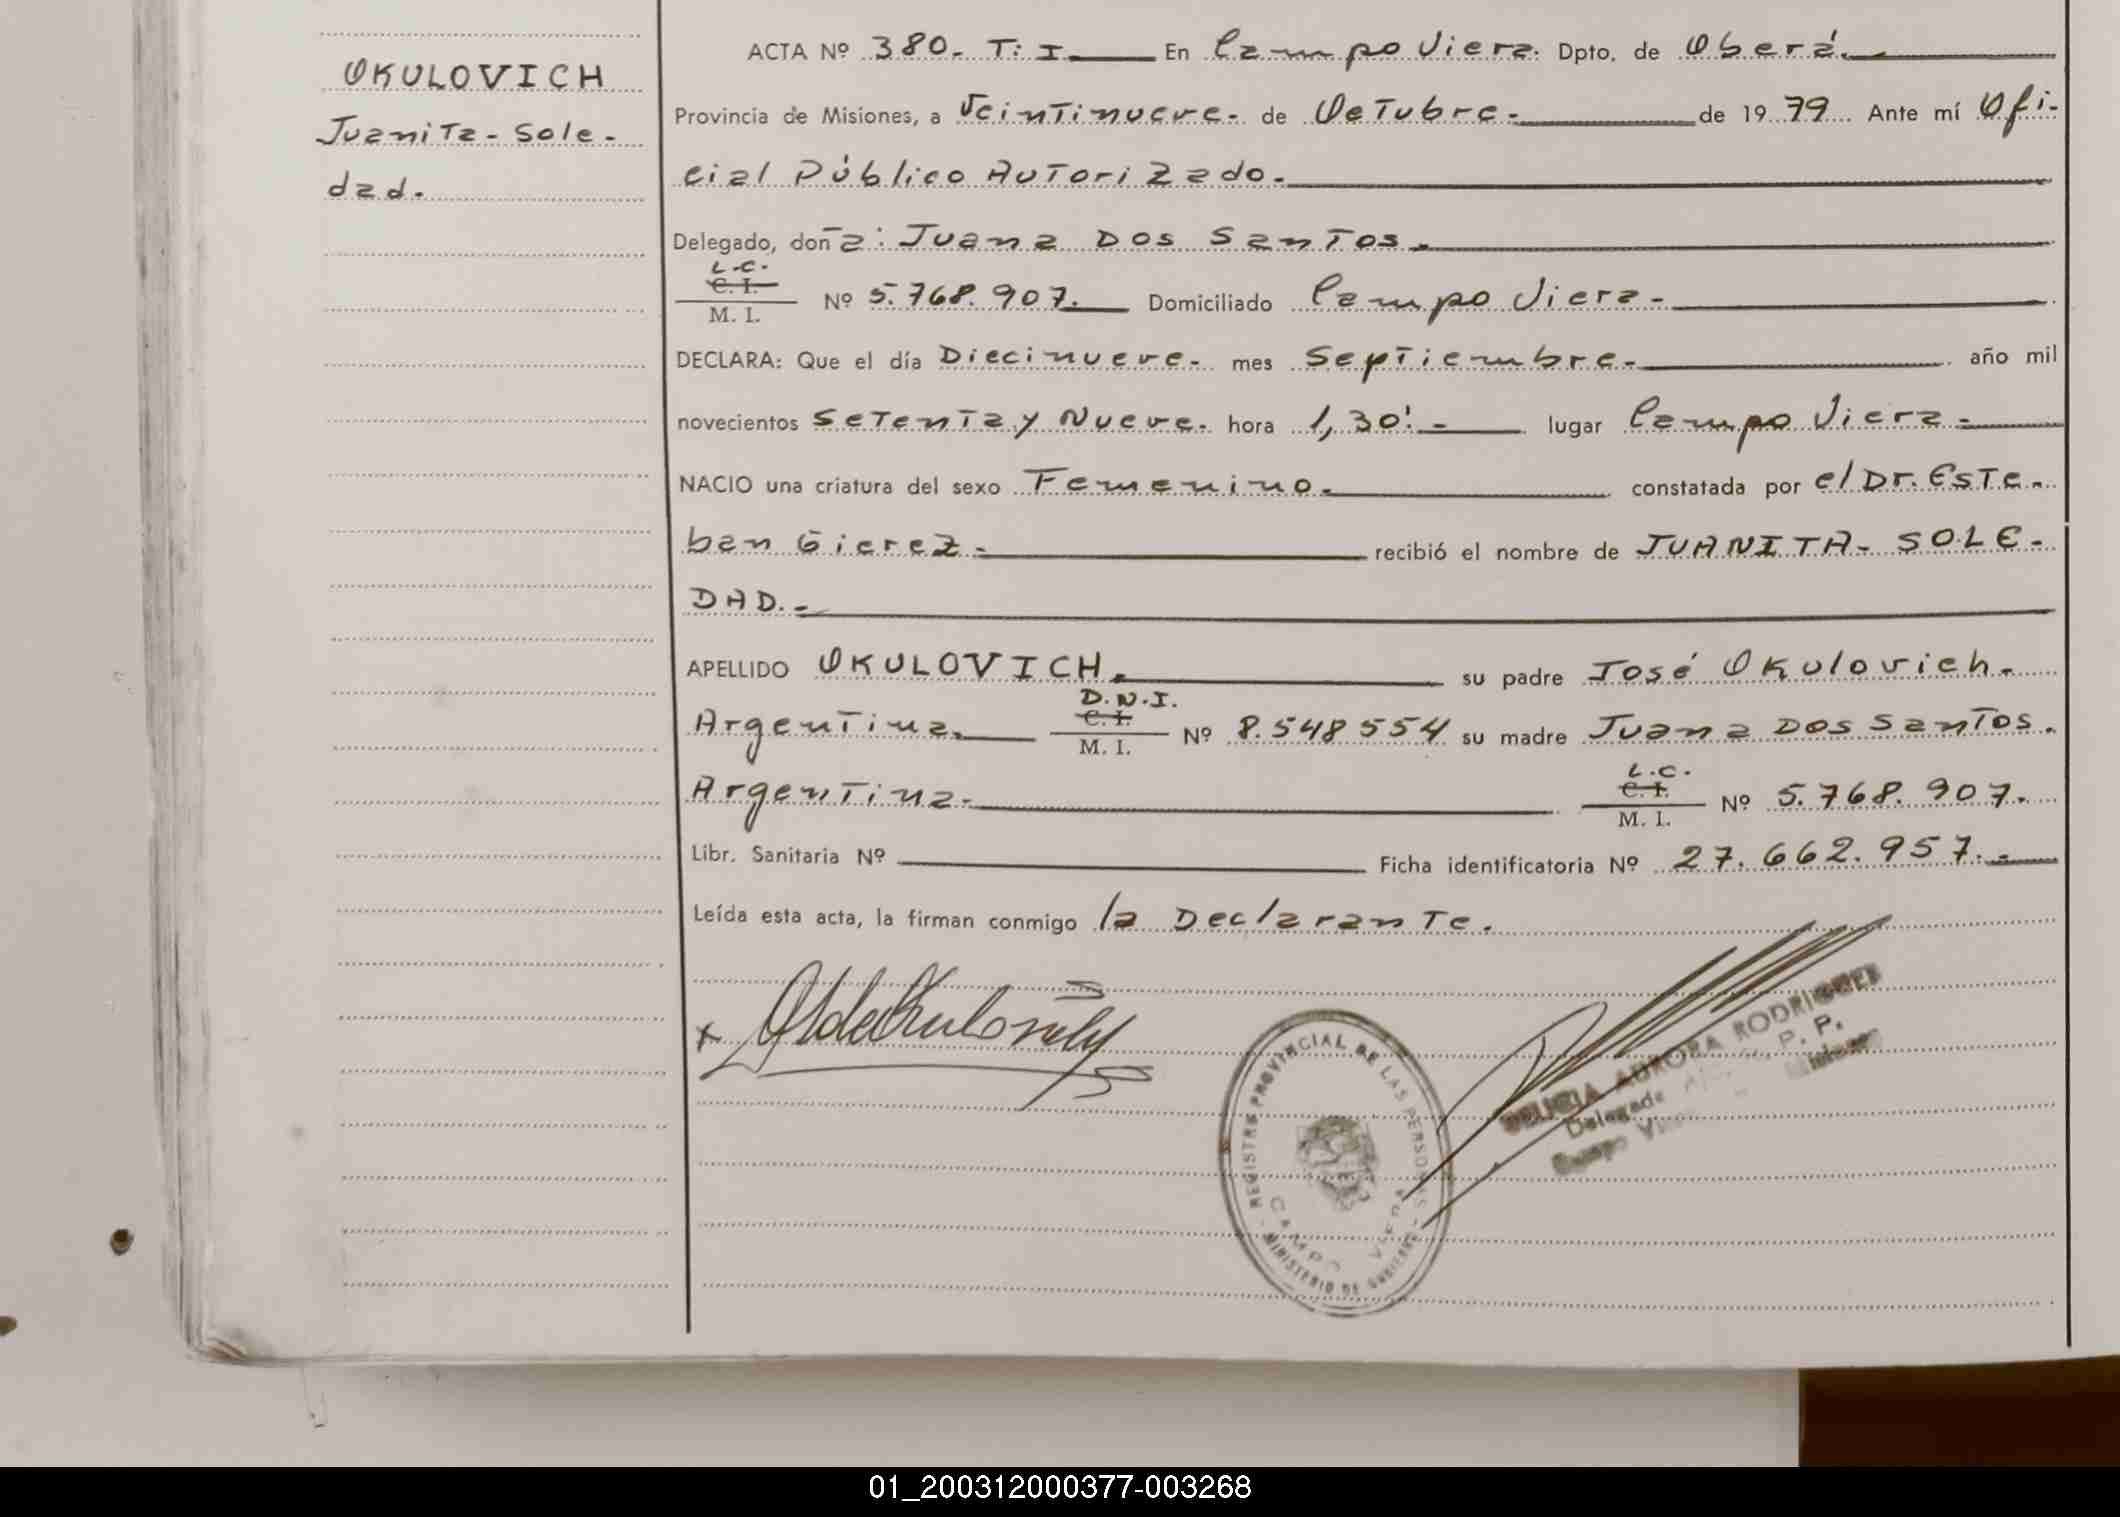 OKULOVICH
Juanita - Sole -
dad.
ACTA Nº 380. T: I. En Campo Viera. Dpto. de Oberá.
Provincia de Misiones, a Veintinueve. de Octubre. de 1979 Ante mí Ofi-
cial Público Autorizado.
Delegado, doña: Juana Dos Santos.
L.C.
C. I.
M. I.
Nº 5.768.907. Domiciliado Campo Viera.
DECLARA: Que el día Diecinueve. mes Septiembre. año mil
novecientos Setenta y Nueve. hora 1,30'. lugar Campo Viera.
NACIO una criatura del sexo Femenino. constatada por el Dr. Este-
ban Gierez. recibió el nombre de JUANITA - SOLE-
DAD.
APELLIDO OKULOVICH. su padre José Okulovich.
D.N.I.
C. I.
M. I.
Argentina. Nº 8.548554 su madre Juana Dos Santos.
L.C.
C. I.
M. I.
Argentina. Nº 5.768.907.
Libr. Sanitaria Nº Ficha identificatoria Nº 27.662.957.
Leída esta acta, la firman conmigo la Declarante.
x
REGISTRO PROVINCIAL DE LAS PERSONAS
CAMPO VIERA
MINISTERIO DE GOBIERNO
DELICIA AURORA RODRIGUEZ
Delegada P. P.
Campo Misiones
01_200312000377-003268